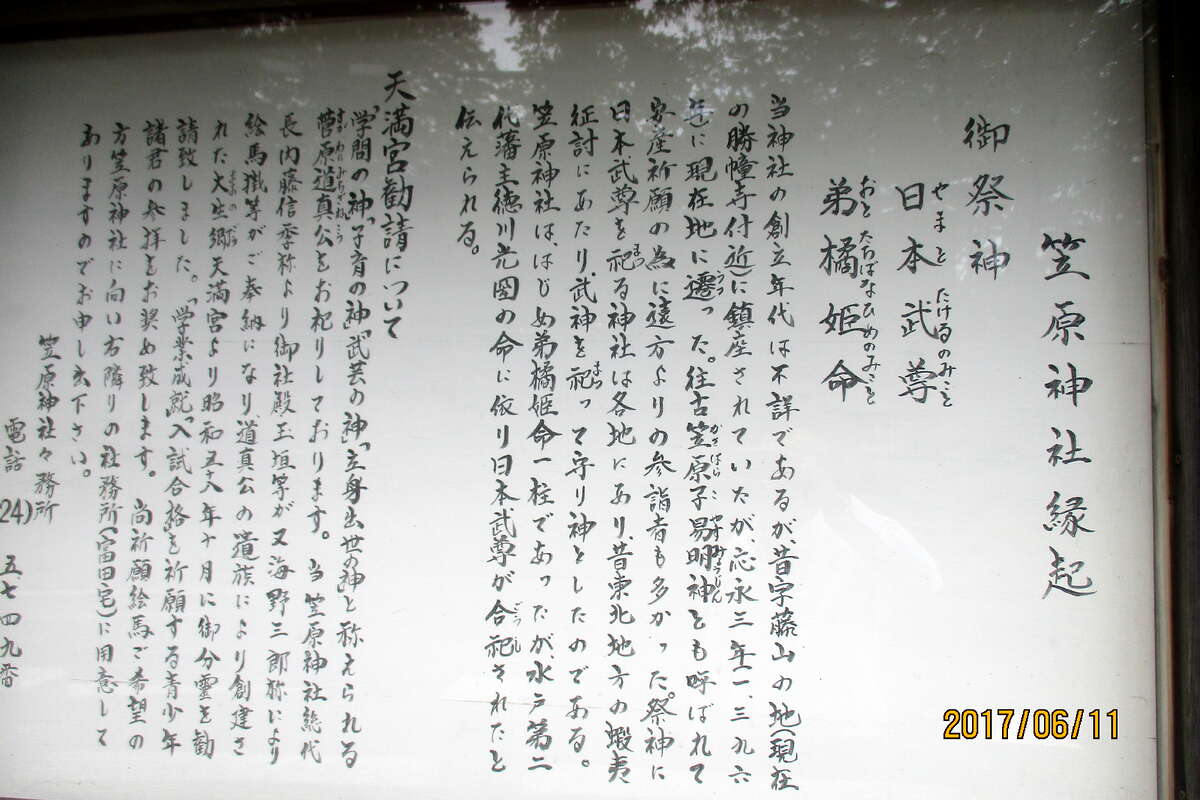 笠原神社縁起
御祭神
日本武尊
やまと たけるのみこと
弟橘姫命
おと たちばなひめのみこと
当神社の創立年代は不詳であるが、昔字藤山の地(現在
の勝幢寺付近)に鎮座されていたが、応永三年(一、三九六
年)に現在地に遷った。往古笠原子易明神とも呼ばれて
安産祈願の為に遠方よりの参詣者も多かった。祭神に
日本武尊を祀る神社は各地にあり、昔東北地方の蝦夷
征討にあたり、武神を祀って守り神としたのである。
笠原神社は、はじめ弟橘姫命一柱であったが、水戸第二
代藩主徳川光圀の命に依り日本武尊が合祀されたと
伝えられる。
天満宮勧請について
「学問の神」「子育の神」「武芸の神」「立身出世の神」と称えられる
菅原道真公をお祀りしております。当笠原神社総代
長内藤信季称より御社殿玉垣等が又海野三郎称により
絵馬掛等がご奉納になり、道真公の遺族により創建さ
れた大生郷天満宮より昭和五十八年十月に御分霊を勧
請致しました。「学業成就」「入試合格」を祈願する青少年
諸君の参拝をお奨め致します。尚祈願絵馬ご希望の
方笠原神社に向い右隣りの社務所(富田宅)に用意して
ありますのでお申し出下さい。
笠原神社々務所
電話(24)五七四九番
2017/06/11